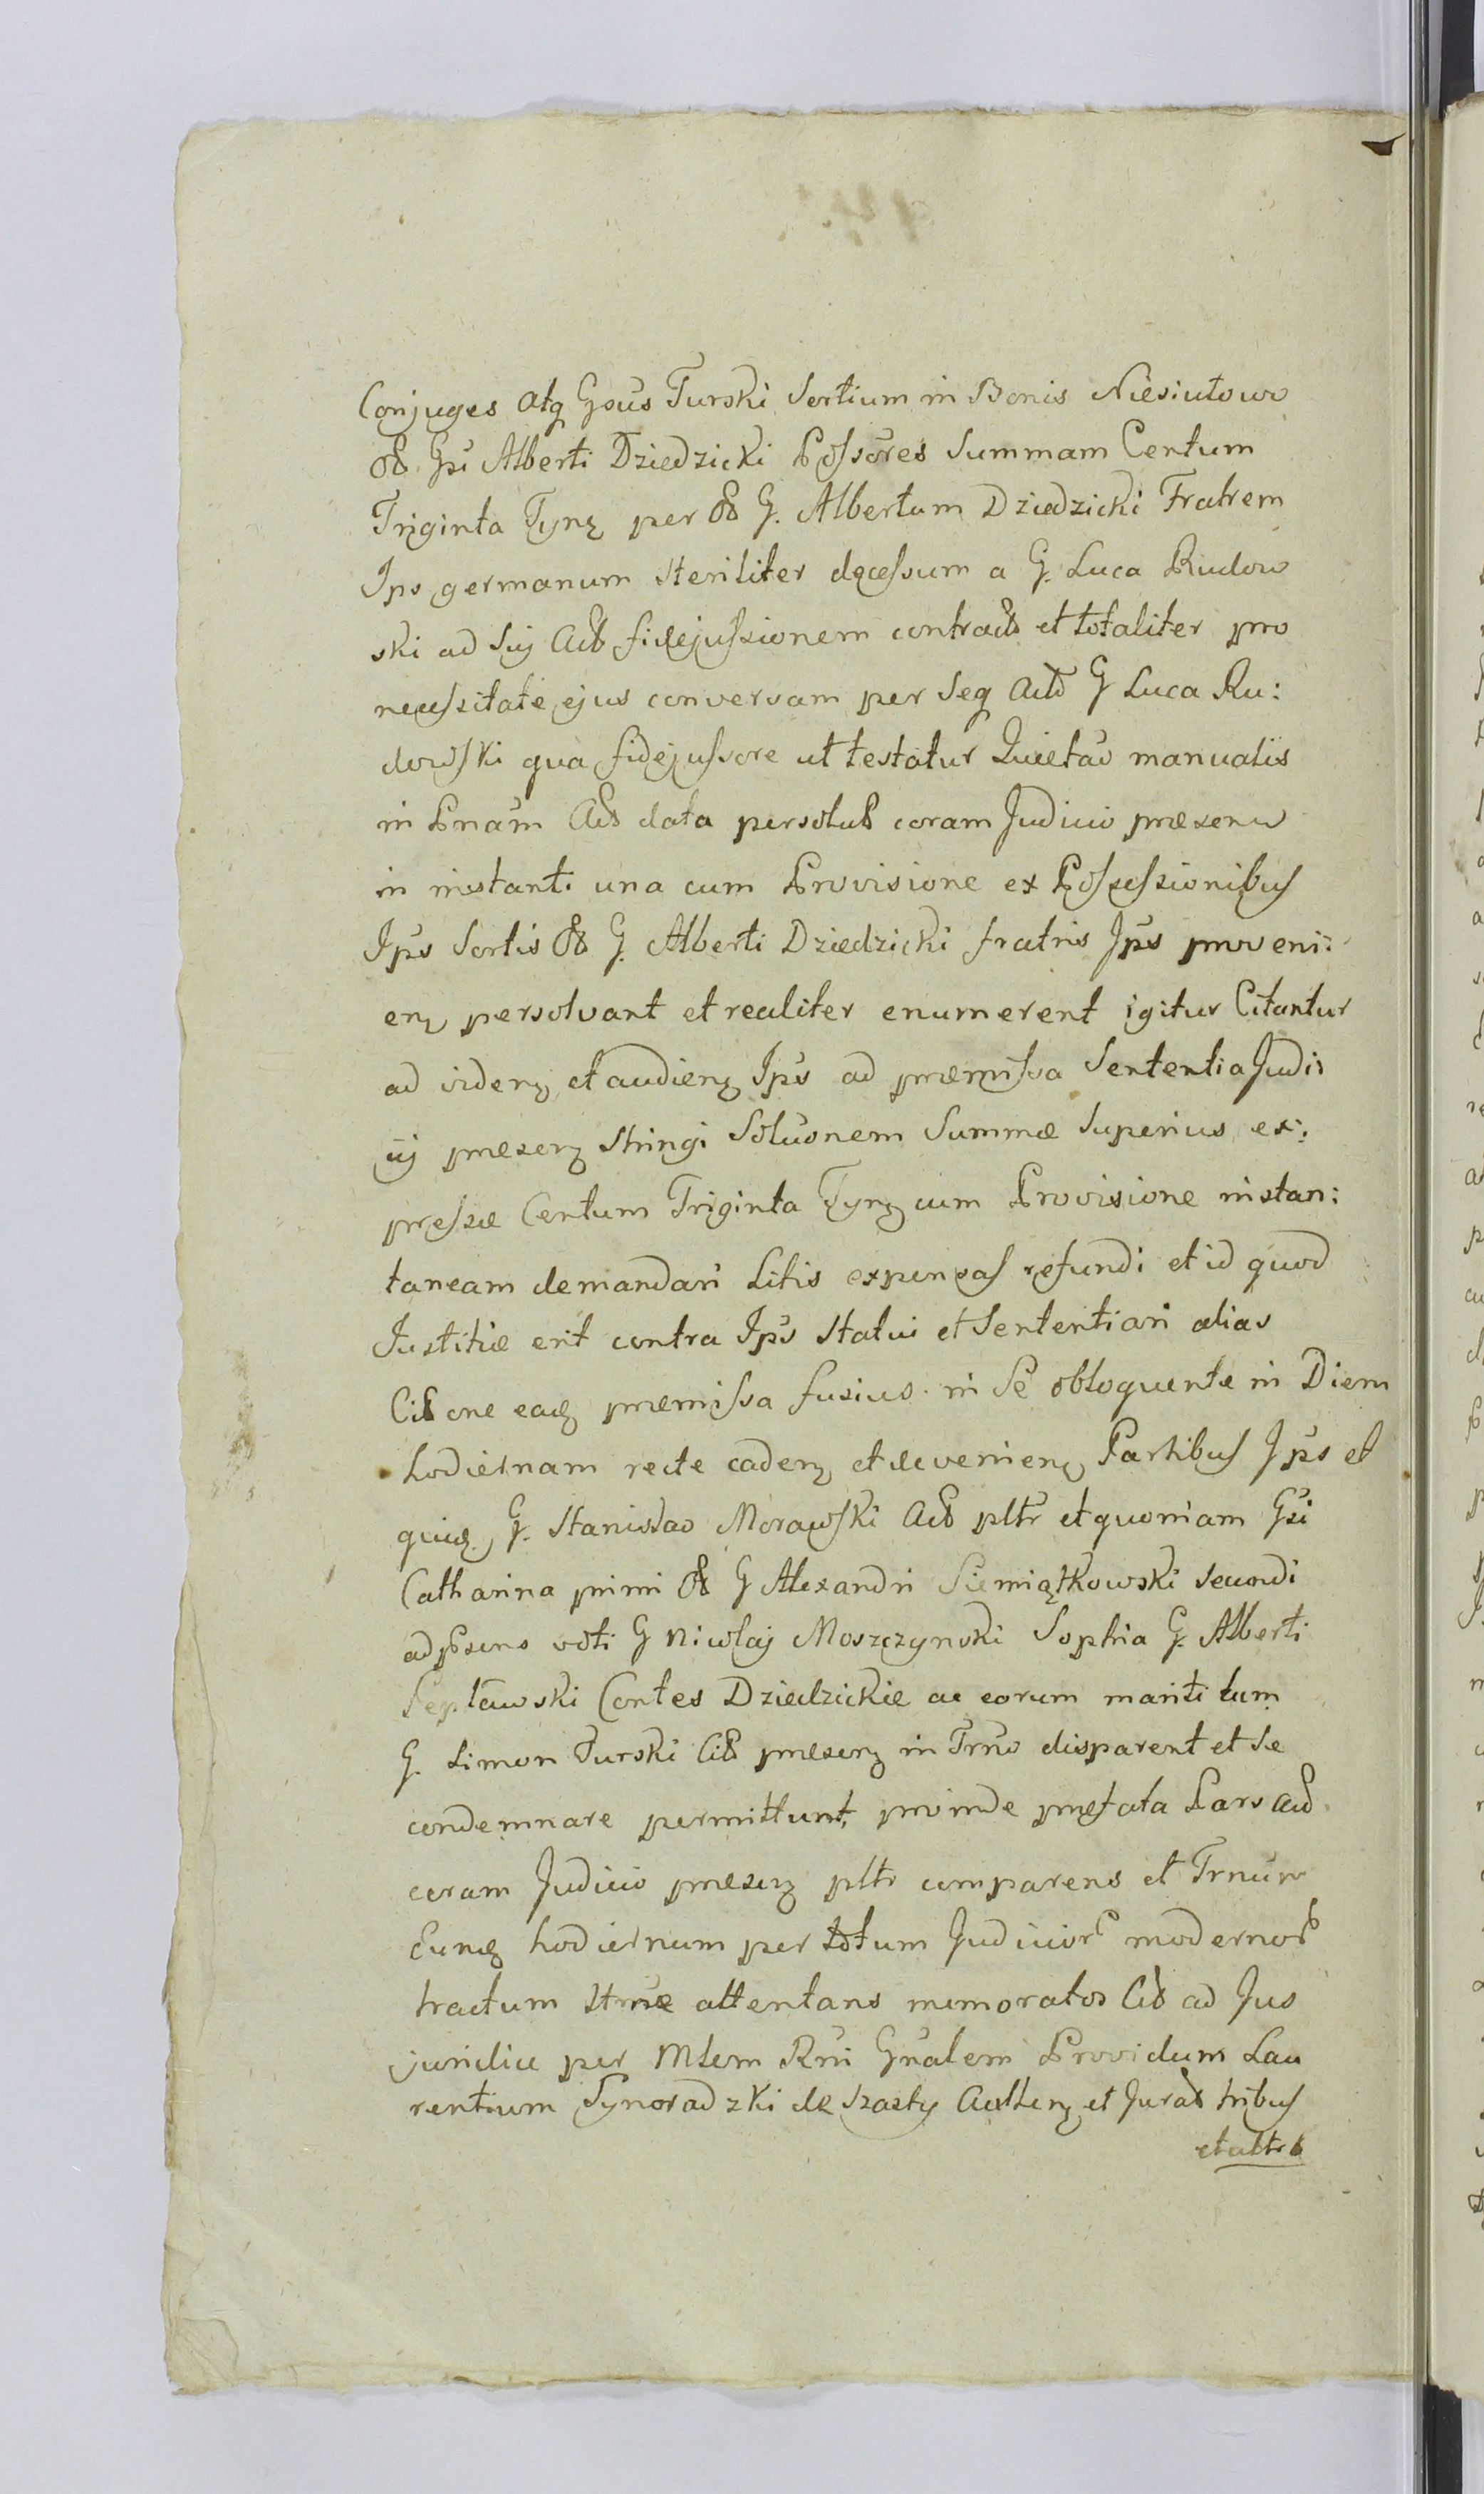 Conjuges atq Gsus Turski Sortium in Bonis Niesiułowo
olt Gsi Alberti Dziedzicki Possores Summam Centum
Triginta Tynf per olt G. Albertum Dziedzicki Fratrem
Ips germanum steriliter decessum a G. Luca Rudow
ski ad sui Act fidejussionem contract et totaliter pro
necessitate ejus conversam per seq Act G Luca Ru:
dowski qua fidejussore ut testatur Quietao manualis
in Pnam Act data persolut coram Judicio præsen
in instanti una cum Provisione ex Possessionibus
Ips Sortis olt G. Alberti Dziedzicki fratris Ips proveni:
en persolvant et realiter enumerent igitur Citantur
ad viden et audien Ips ad præmissa Sententia Judi
cij præsen stringi Soluonem Summæ superius ex:
pressæ Centum Triginta Tynf cum Provisione instan:
taneam demandari Litis expensas refundi et id quod
Justitiæ erit contra Ips statui et Sententiari alias
Citone eadem præmissa fusius in se obloquente in Diem
hodiernam recte caden et devenien Partibus Ips et
quidem G. Stanislao Morawski Act pltr et quoniam Gsi
Catharina primi olt G Alexandri Siemiątkowski secundi
ad Psens voti G Nicolaj Moszczynski Sophia G. Alberti
Septawski Contes Dziedzickie ac eorum mariti tum
G. Simon Turski Cit præsen in Trno disparent et se
condemnare permittunt, proinde præfata Pars Act
coram Judicio præsen pltr comparens et Trnum
Eundem hodiernum per totum Judicior modernor
tractum strue attentans memoratos Cit ad Jus
juridice per Mtem Rni Gnalem Providum Lau
rentium Synoradzki de Szasty Authen et Jurat tribus
et ultra